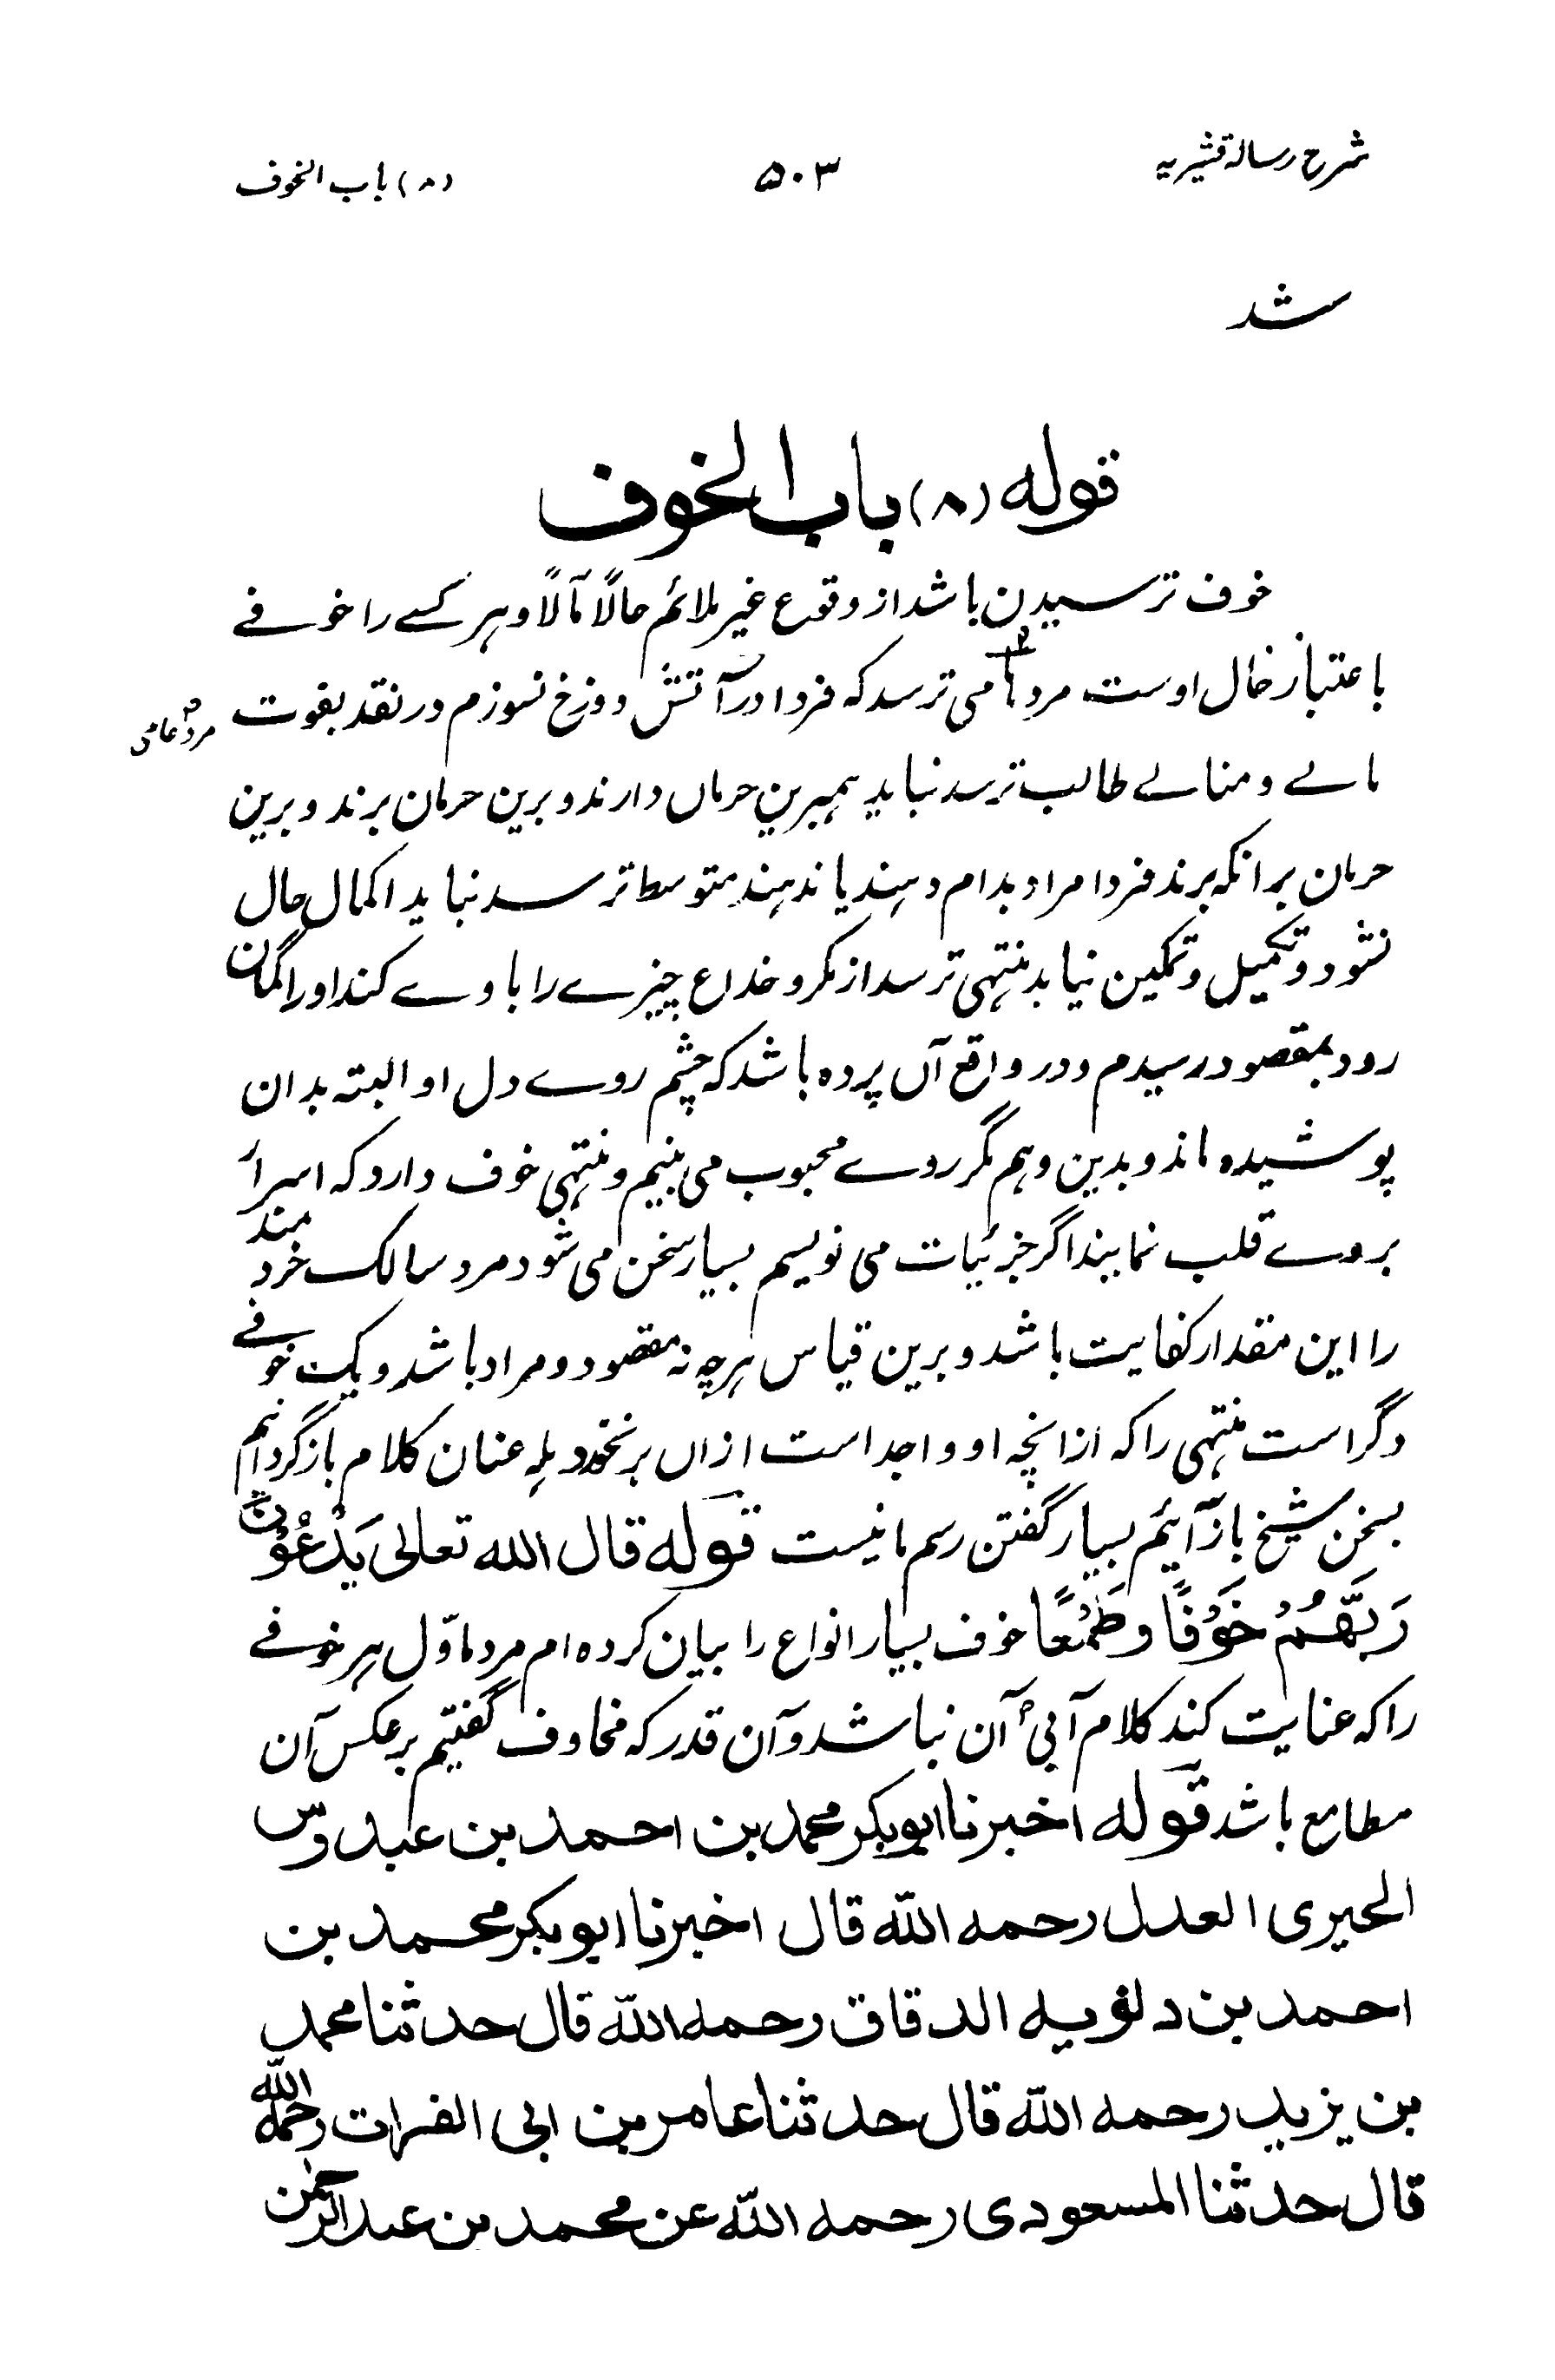 شرح رسالہ قشیریہ ۵۰۳ (۸) باب الخوف
شد
قولہ (۸) باب الخوف
خوف ترسیدن باشد از وقوع غیر ملائم حالًا مآلًا و ہر کسے را خوفے
باعتبار حال اوست مردم می ترسد کہ فردا در آتش دوزخ نسوزم در نقد بفوت
مرد عامی
مالے و منالے طالب ترسد نباید ہمبرین حرماں دارند و برین حرمان برند و برین
حرمان برانکہ برند فردا مراد بدام دہند یا ندہند متوسط ترسد نباید اکمال حال
نشود و تکمیل و تمکین نیابد منتہی ترسد از مکر و خداع چیزے را باوے کند او را گمان
رود بمقصود رسیدم و در واقع آں پردہ باشد کہ چشم روے دل او البتہ بدان
پوشیدہ ماند و بدین وہم مگر روے محبوب می بینم و منتہی خوف دارد کہ اسرار
بروے قلب نمایند اگر جزئیات می نویسم بسیار سخن می شود مرد سالک خردمند
را این مقدار کفایت باشد و برین قیاس ہرچہ نہ مقصود و مراد باشد و یک خوفے
دگر است منتہی را کہ ازانچہ او واجد است ازاں برنخورد بلہ عنان کلام باز گردانیم
بسخن شیخ باز آئیم بسیار گفتن رسم ما نیست قولہ قال اللہ تعالی یَدْعُوْنَ
رَبَّهُمْ خَوْفًا وطَمْعًا خوف بسیار انواع را بیان کردہ ام مرد ماوّل ہر خوفے
را کہ عنایت کند کلام آبیٔ آن نباشد و آن قدر کہ مخاوف گفتیم بر عکس آن
مطامع باشد قولہ اخبرنا ابوبکر محمد بن احمد بن عبدوس
الحیری العدل رحمہ اللّٰہ قال اخبرنا ابوبکر محمد بن
احمد بن دلویہ الدقاق رحمہ اللّٰہ قال حدثنا محمد
بن یزید رحمہ اللّٰہ قال حدثنا عامر بن ابی الفرات رحمہ اللّٰہ
قال حدثنا المسعودی رحمہ اللّٰہ عن محمد بن عبد الرحمٰن